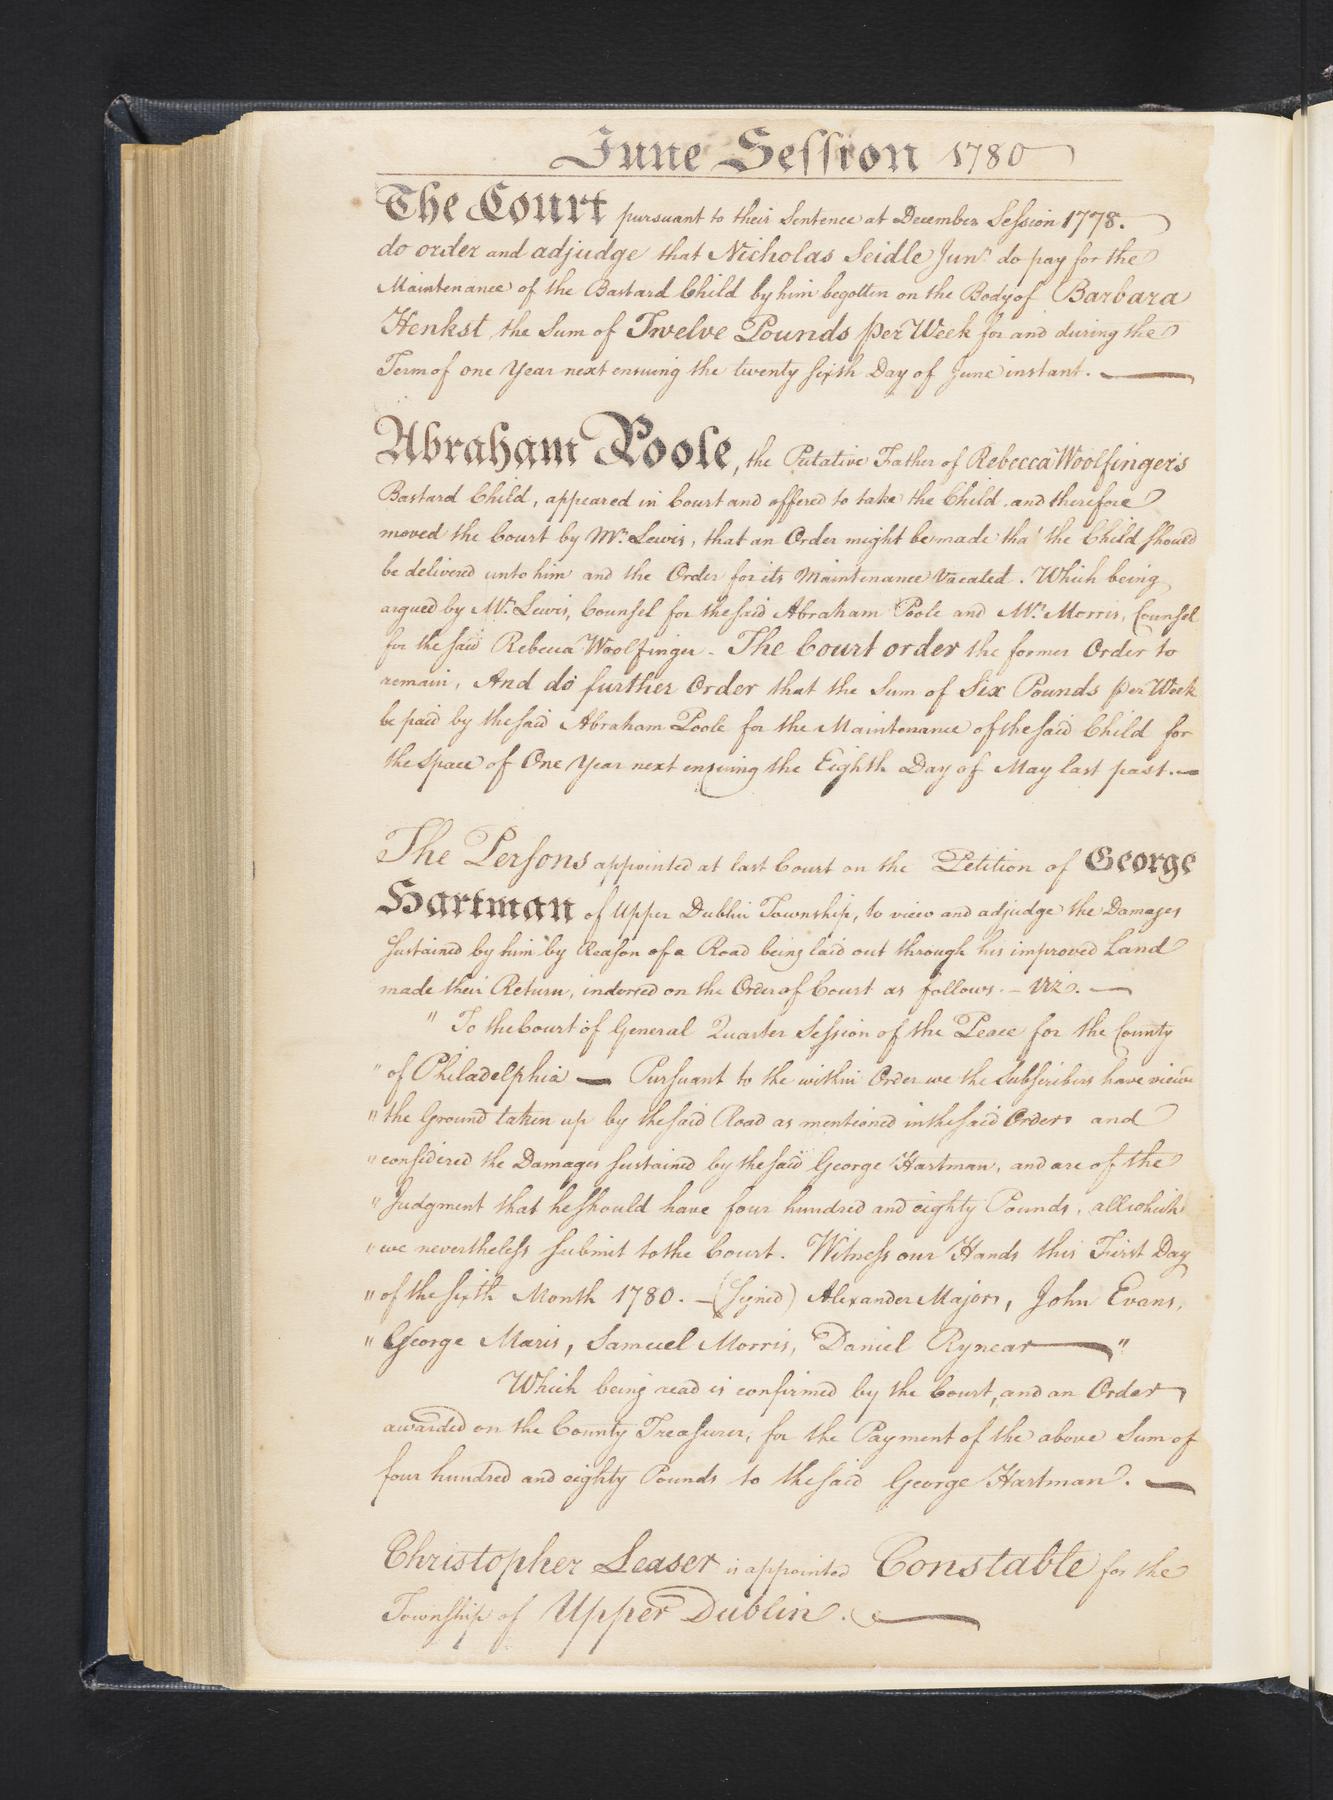 June Session 1780
The Court pursuant to their Sentence at December Session 1778.
do order and adjudge that Nicholas Seidle Junr. do pay for the
Maintenance of the Bastard Child by him begotten on the Body of Barbara
Henkst the Sum of Twelve Pounds per Week for and during the
Term of one Year next ensuing the twenty sixth Day of June instant. —
Abraham Poole, the Putative Father of Rebecca Woolfinger's
Bastard Child, appeared in Court and offered to take the Child and therefore
moved the Court by Mr. Lewis, that an Order might be made tha' the Child should
be delivered unto him and the Order for its Maintenance Vacated. Which being
argued by Mr. Lewis, Counsel for the said Abraham Poole and Mr. Morris, Counsel
for the said Rebecca Woolfinger - The Court order the former Order to
remain, And do further Order that the Sum of Six Pounds per Week
be paid by the said Abraham Poole for the Maintenance of the said Child for
the Space of One Year next ensuing the Eighth Day of May last past. —
The Persons appointed at last Court on the Petition of George
Hartman of Upper Dublin Township, to view and adjudge the Damages
sustained by him by Reason of a Road being laid out through his improved Land
made their Return, indorsed on the Order of Court as follows. – Viz. —
" To the Court of General Quarter Session of the Peace for the County
" of Philadelphia — Pursuant to the within Order we the Subscribers have view'd
" the Ground taken up by the said Road as mentioned in the said Order and
" considered the Damages sustained by the said George Hartman, and are of the
" Judgment that he should have four hundred and eighty Pounds, all which
" we nevertheless submit to the Court. Witness our Hands this First Day
" of the sixth Month 1780. — (Signed) Alexander Majors, John Evans,
" George Maris, Samuel Morris, Daniel Rynear — "
Which being read is confirmed by the Court, and an Order
awarded on the County Treasurer, for the Payment of the above Sum of
four hundred and eighty Pounds to the said George Hartman. —
Christopher Leaser is appointed Constable for the
Township of Upper Dublin. —